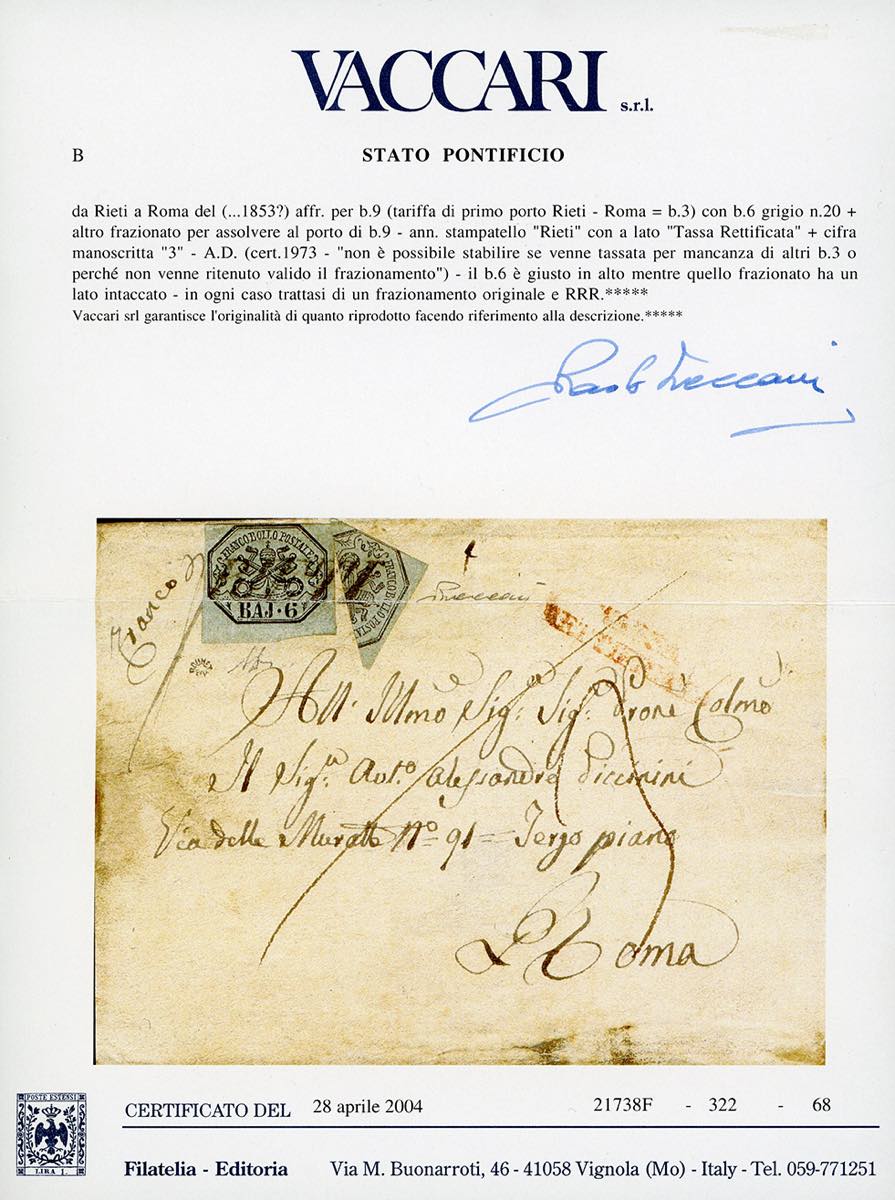 VACCARI s.r.l.
B STATO PONTIFICIO
da Rieti a Roma del (...1853?) affr. per b.9 (tariffa di primo porto Rieti - Roma = b.3) con b.6 grigio n.20 +
altro frazionato per assolvere al porto di b.9 - ann. stampatello "Rieti" con a lato "Tassa Rettificata" + cifra
manoscritta "3" - A.D. (cert.1973 - "non è possibile stabilire se venne tassata per mancanza di altri b.3 o
perché non venne ritenuto valido il frazionamento") - il b.6 è giusto in alto mentre quello frazionato ha un
lato intaccato - in ogni caso trattasi di un frazionamento originale e RRR.*****
Vaccari srl garantisce l'originalità di quanto riprodotto facendo riferimento alla descrizione.*****
Franco
FRANCO BOLLO POSTALE
BAJ·6
FRANCO BOLLO POSTA
All' Sig.r Sig.r Prone Colmo
Il Sig.r Alessandro Piccinini
Via delle Muratte No 91 = Terzo piano
Roma
POSTE ESTENSI
LIRA 1.
CERTIFICATO DEL 28 aprile 2004 21738F - 322 - 68
Filatelia - Editoria Via M. Buonarroti, 46 - 41058 Vignola (Mo) - Italy - Tel. 059-771251